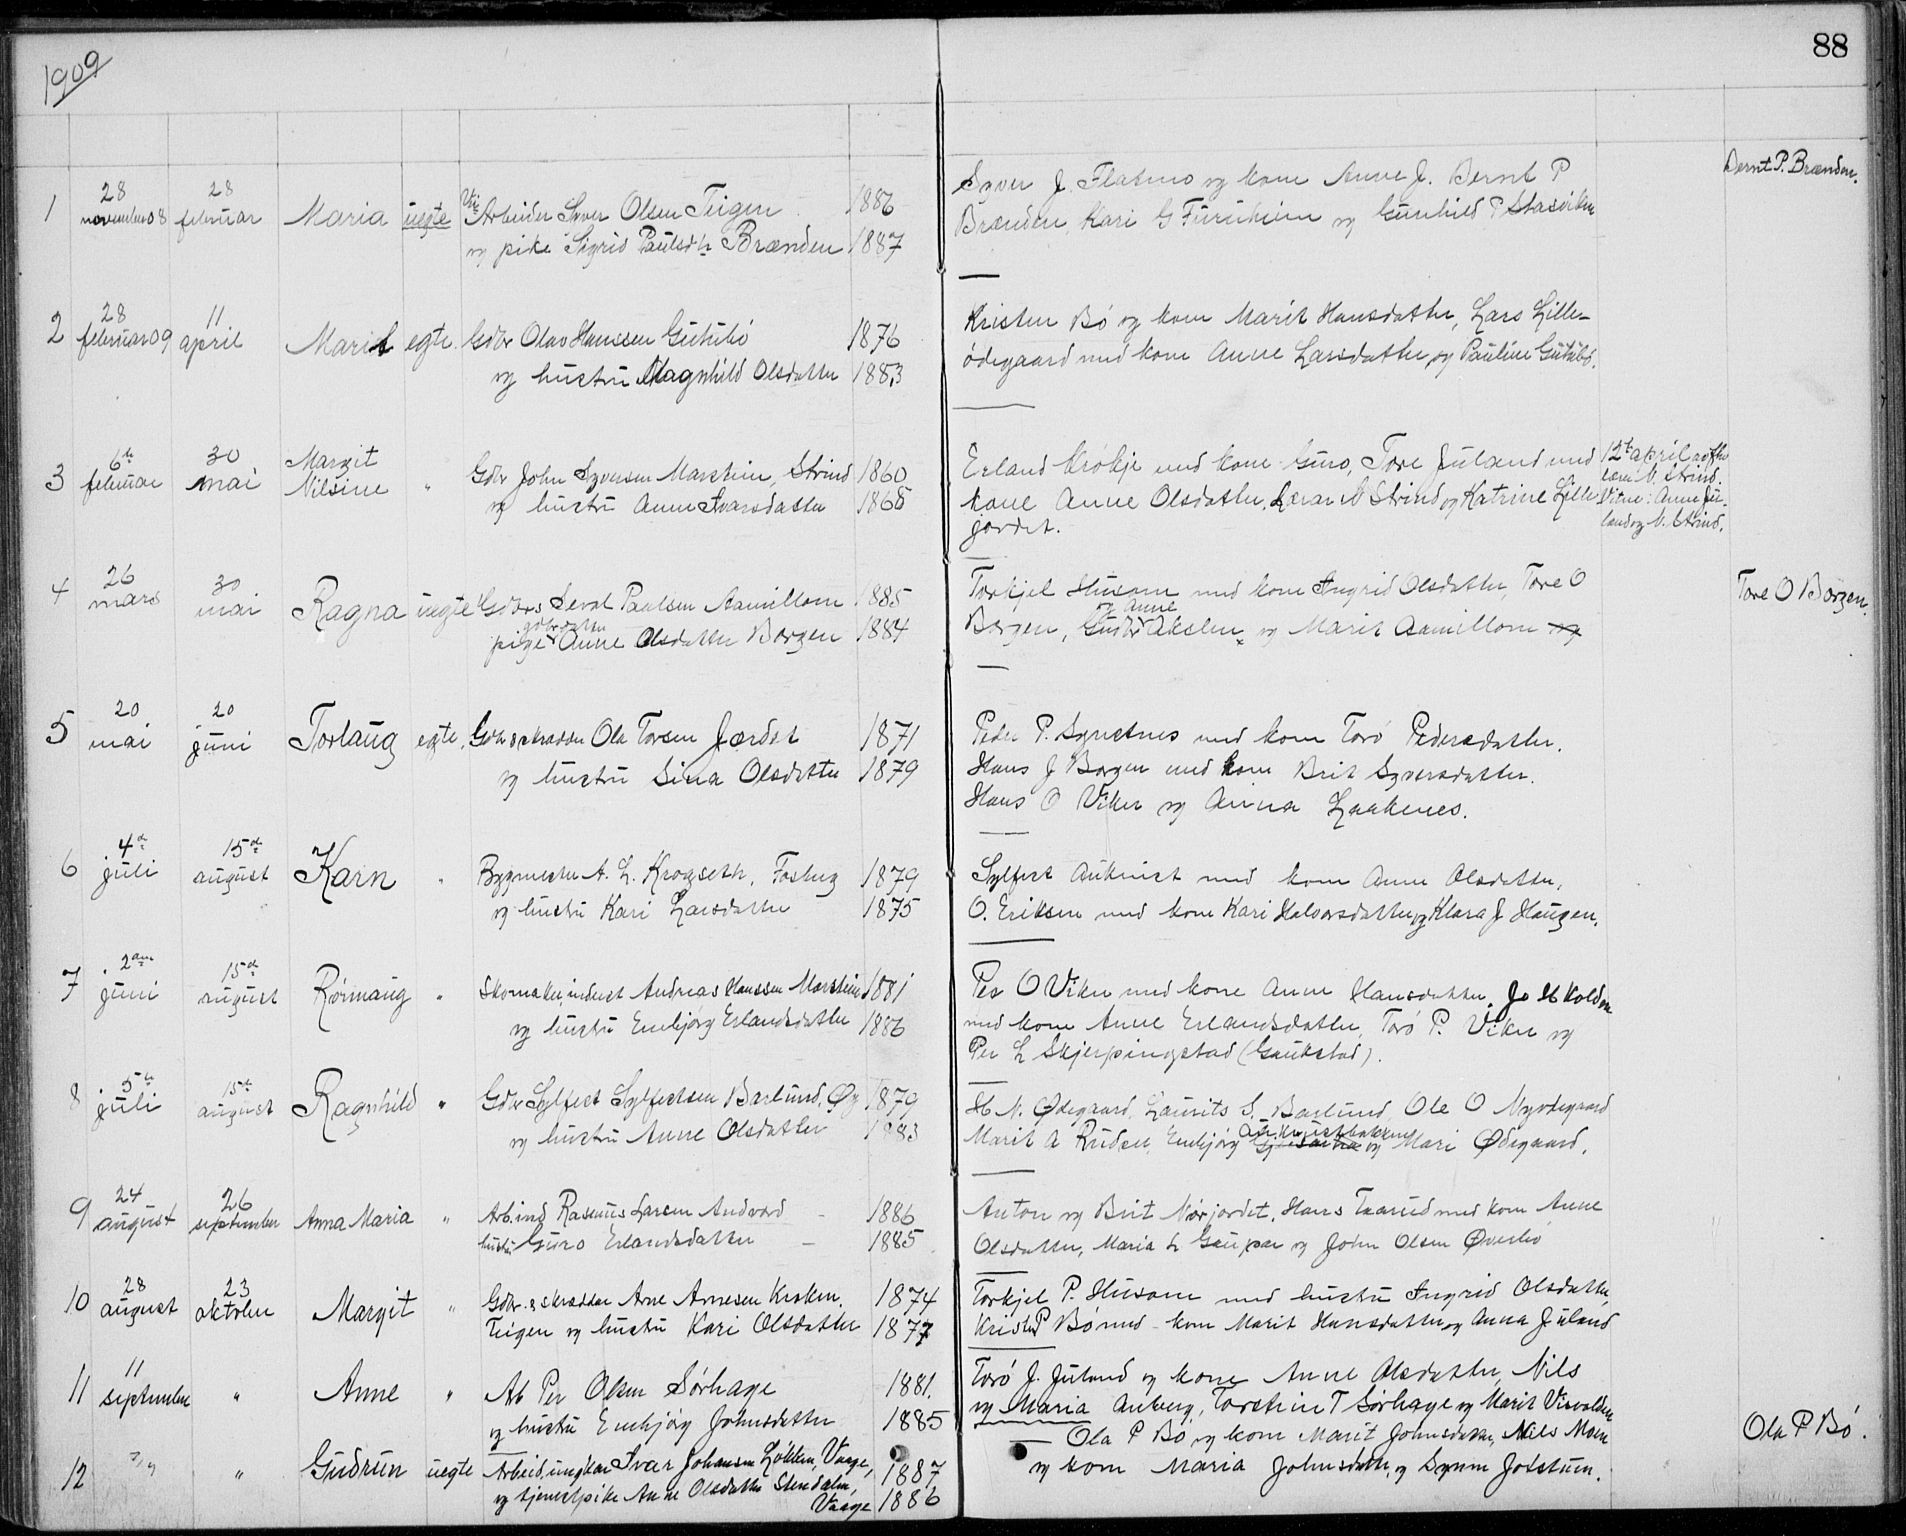 1909
88
1
28 november 08
28 februar
Maria
uegte
Arbeider Syver Olsen Teigen
1886
og pike Sigrid Paulsdtr Brænden
1887
Syver J. Flatmo og kone Anne J. Bernt P
Brænden, Kari G Furuheim og Gunhild P
Bernt P. Brænden.
2
28 februar 09
11 april
Marit
egte
Gdbr Olav Hanssen
1876
og hustru Magnhild Olsdatter
1883
Kristen Bö og kone Marit Hansdatter, Lars Lille-
ödegaard med kone Anne Larsdatter og Pauline
3
6te februar
30 mai
Margit
Nilsine
"
Gdbr John Syversen Marstein, Strind
1860
og hustru Anne Ivarsdatter
1868
Erland Krökje med kone Guro, Tore Juland med
kone Anne Olsdatter, Lærar N Strind og Katrine Lille
jordet.
12te april af
lærer N. Strind.
Vitne: Anne Ju-
land og N. Strind.
4
26 mars
30 mai
Ragna
uegte
Gdbrs Sevat Paulsen Aamillom
1885
pige gdbrdatter Anne Olsdatter Borgen
1884
Torkjel Husom med kone Ingrid Olsdatter, Tore O
Borgen, Gudbr og Anne Akslen og Marit Aamillom og
Tore O Borgen.
5
20 mai
20 juni
Torlaug
egte
Gdbr skrædder Ola Torsen Jordet
1871
og hustru Sina Olsdatter
1879
Peder P. Synstnes med kone Torö Pedersdatter.
Hans J Borgen med kone Brit Syversdatter.
Hans O Viker og Anna Laakenes.
6
4de juli
15de august
Karn
"
Bygmester A. L. Krogseth, Fosheg
1879
og hustru Kari Larsdatter
1875
Sylfest Aukrust med kone Anne Olsdatter,
O. Eriksen med kone Kari Halvorsdatter og Klara J Haugen.
7
2den juni
15de august
Rönnaug
"
Skomaker inderst Andreas Hanssen Marstein
1881
og hustru Embjörg Erlandsdatter
1886
Per O Viken med kone Anne Hansdatter. Jo H Kolden
med kone Anne Erlandsdatter, Torö P. Viken og
Per L Skjerpingstad (Gaukstad).
8
5te juli
15de august
Ragnhild
"
Gdbr Sylfest Sylfestsen Barlund, Öy
1879
og hustru Anne Olsdatter
1883
H N. Ødegaard, Laurits S. Barlund, Ole O Nyödegaard
Marit A Rudsen, Embjörg Aukrustbakken og Mari Ødegaard.
9
24 august
26 september
Anna Maria
"
Arb. ind Rasmus Larsen Andvord
1886
hustru Guro Erlandsdatter
1885
Anton og Brit Norjordet, Hans Traarud med kone Anne
Olsdatter, Maria L Gaupar og John Olsen Øverbö
10
28 august
23 oktober
Margit
"
Gdbr. & skrædder Arne Arnesen Kroken.
1874
Teigen og hustru Kari Olsdatter
1877
Torkjel P. Husom med hustru Ingrid Olsdatter,
Kristen P Bö med kone Marit Hansdatter og Anna Juland
11
11 september
"
Anne
"
Arb Per Olsen Sörhage
1881.
og hustru Embjörg Johnsdatter
1885
Torö J. Juland og kone Anne Olsdatter, Nils
og Maria Anberg, Torstein T Sörhage og Marit Visvolden
12
7/9
"
Gudrun
uegte
Arbeid. ungkar Ivar Johansen Lökken, Vaage,
1887
og tjenestpike Anne Olsdatter Stendalen,
1886
Vaage
Ola P Bö og kone Marit Johnsdatter, Nils Moen
og kone Maria Johnsdatter, og Synne Jotstuen.
Ola P Bö.